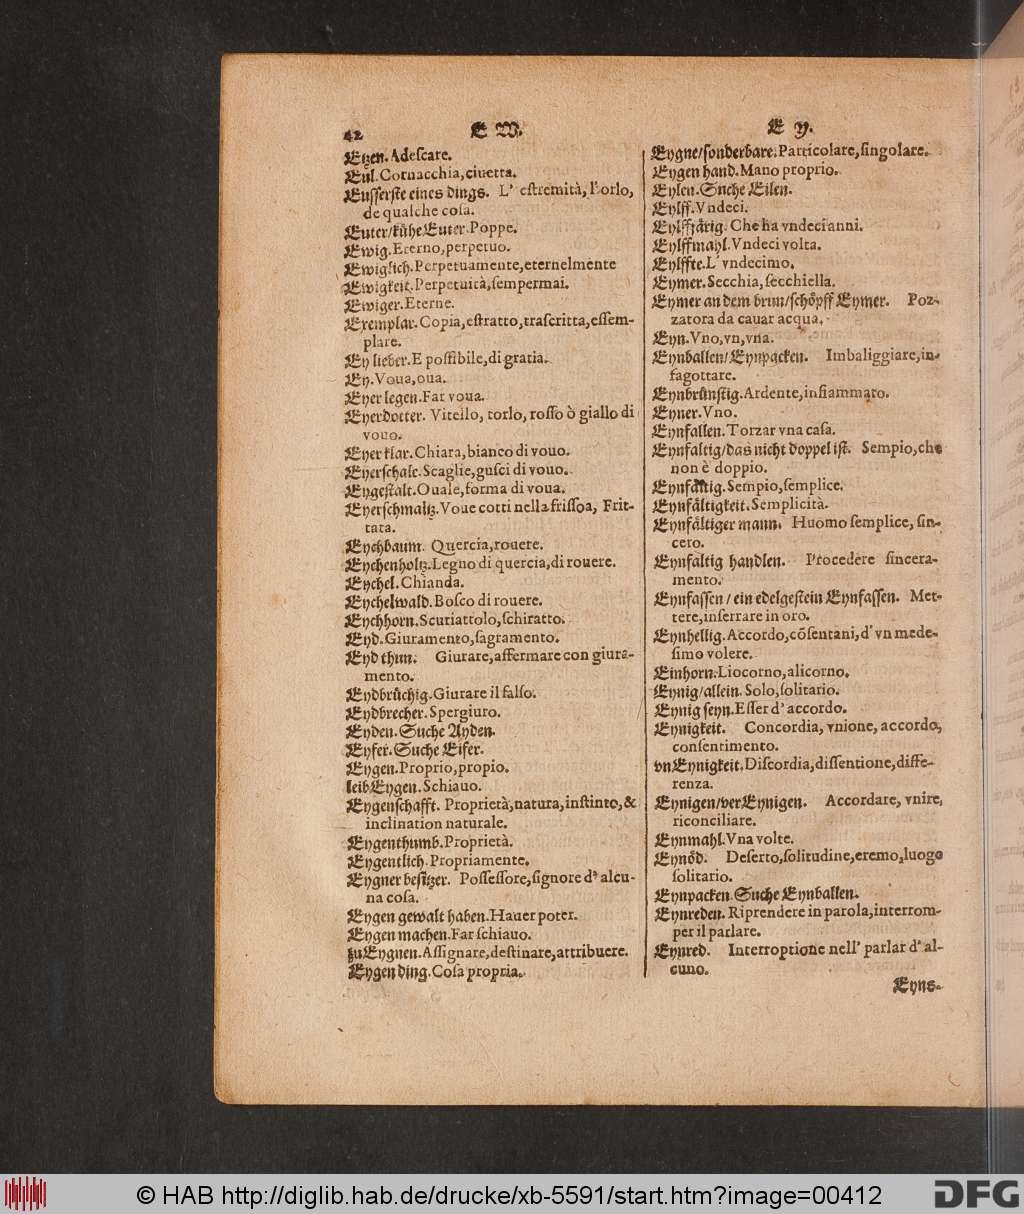 42
E W.
E Y.
Etzen. Adeſcare.
Eül. Cornacchia, ciuetta.
Euſſerſte eines dings. L' eſtremità, l'orlo,
de qualche coſa.
Euter/kühe Euter. Poppe.
Ewig. Eterno, perpetuo.
Ewiglich. Perpetuamente, eternelmente
Ewigkeit. Perpetuità, ſempermai.
Ewiger. Eterne.
Exemplar. Copia, eſtratto, traſcritta, eſſem-
plare.
Ey lieber. E poſſibile, di gratia.
Ey. Voua, oua.
Eyer legen. Far voua.
Eyerdotter. Vitello, torlo, roſſo ò giallo di
vouo.
Eyer klar. Chiara, bianco di vouo.
Eyerſchale. Scaglie, guſci di vouo.
Eygeſtalt. Ouale, forma di voua.
Eyerſchmaltz. Voue cotti nella friſſoa, Frit-
tata.
Eychbaum. Quercia, rouere.
Eychenholtz. Legno di quercia, di rouere.
Eychel. Chianda.
Eychelwald. Boſco di rouere.
Eychhorn. Scuriattolo, ſchiratto.
Eyd. Giuramento, ſagramento.
Eyd thun. Giurare, affermare con giura-
mento.
Eydbrüchig. Giurare il falſo.
Eydbrecher. Spergiuro.
Eyden. Suche Ayden.
Eyfer. Suche Eifer.
Eygen. Proprio, propio.
leib Eygen. Schiauo.
Eygenſchafft. Proprietà, natura, inſtinto, &
inclination naturale.
Eygenthumb. Proprietà.
Eygentlich. Propriamente.
Eygner beſitzer. Poſſeſſore, ſignore d' alcu-
na coſa.
Eygen gewalt haben. Hauer poter.
Eygen machen. Far ſchiauo.
zu Eygnen. Aſſignare, deſtinare, attribuere.
Eygen ding. Coſa propria.
Eygne/ſonderbare. Particolare, ſingolare.
Eygen hand. Mano proprio.
Eylen. Suche Eilen.
Eylff. Vndeci.
Eylffjärig. Che ha vndeci anni.
Eylffmahl. Vndeci volta.
Eylffte. L' vndecimo.
Eymer. Secchia, ſecchiella.
Eymer an dem brun/ſchöpff Eymer. Poz-
zatora da cauar acqua.
Eyn. Vno, vn, vna.
Eynballen/Eynpacken. Imbaliggiare, in-
fagottare.
Eynbrünſtig. Ardente, infiammato.
Eyner. Vno.
Eynfallen. Torzar vna caſa.
Eynfaltig/das nicht doppel iſt. Sempio, che
non è doppio.
Eynfältig. Sempio, ſemplice.
Eynfältigkeit. Semplicità.
Eynfältiger mann. Huomo ſemplice, ſin-
cero.
Eynfaltig handlen. Procedere ſincera-
mento.
Eynfaſſen / ein edelgeſtein Eynfaſſen. Met-
tere, inſerrare in oro.
Eynhellig. Accordo, cōſentani, d' vn mede-
ſimo volere.
Einhorn. Liocorno, alicorno.
Eynig/allein. Solo, ſolitario.
Eynig ſeyn. Eſſer d' accordo.
Eynigkeit. Concordia, vnione, accordo,
conſentimento.
vn Eynigkeit. Diſcordia, diſſentione, diffe-
renza.
Eynigen/ver Eynigen. Accordare, vnire,
riconciliare.
Eynmahl. Vna volte.
Eynöd. Deſerto, ſolitudine, eremo, luogo
ſolitario.
Eynpacken. Suche Eynballen.
Eynreden. Riprendere in parola, interrom-
per il parlare.
Eynred. Interroptione nell' parlar d' al-
cuno.
Eyns-
© HAB http://diglib.hab.de/drucke/xb-5591/start.htm?image=00412
DFG